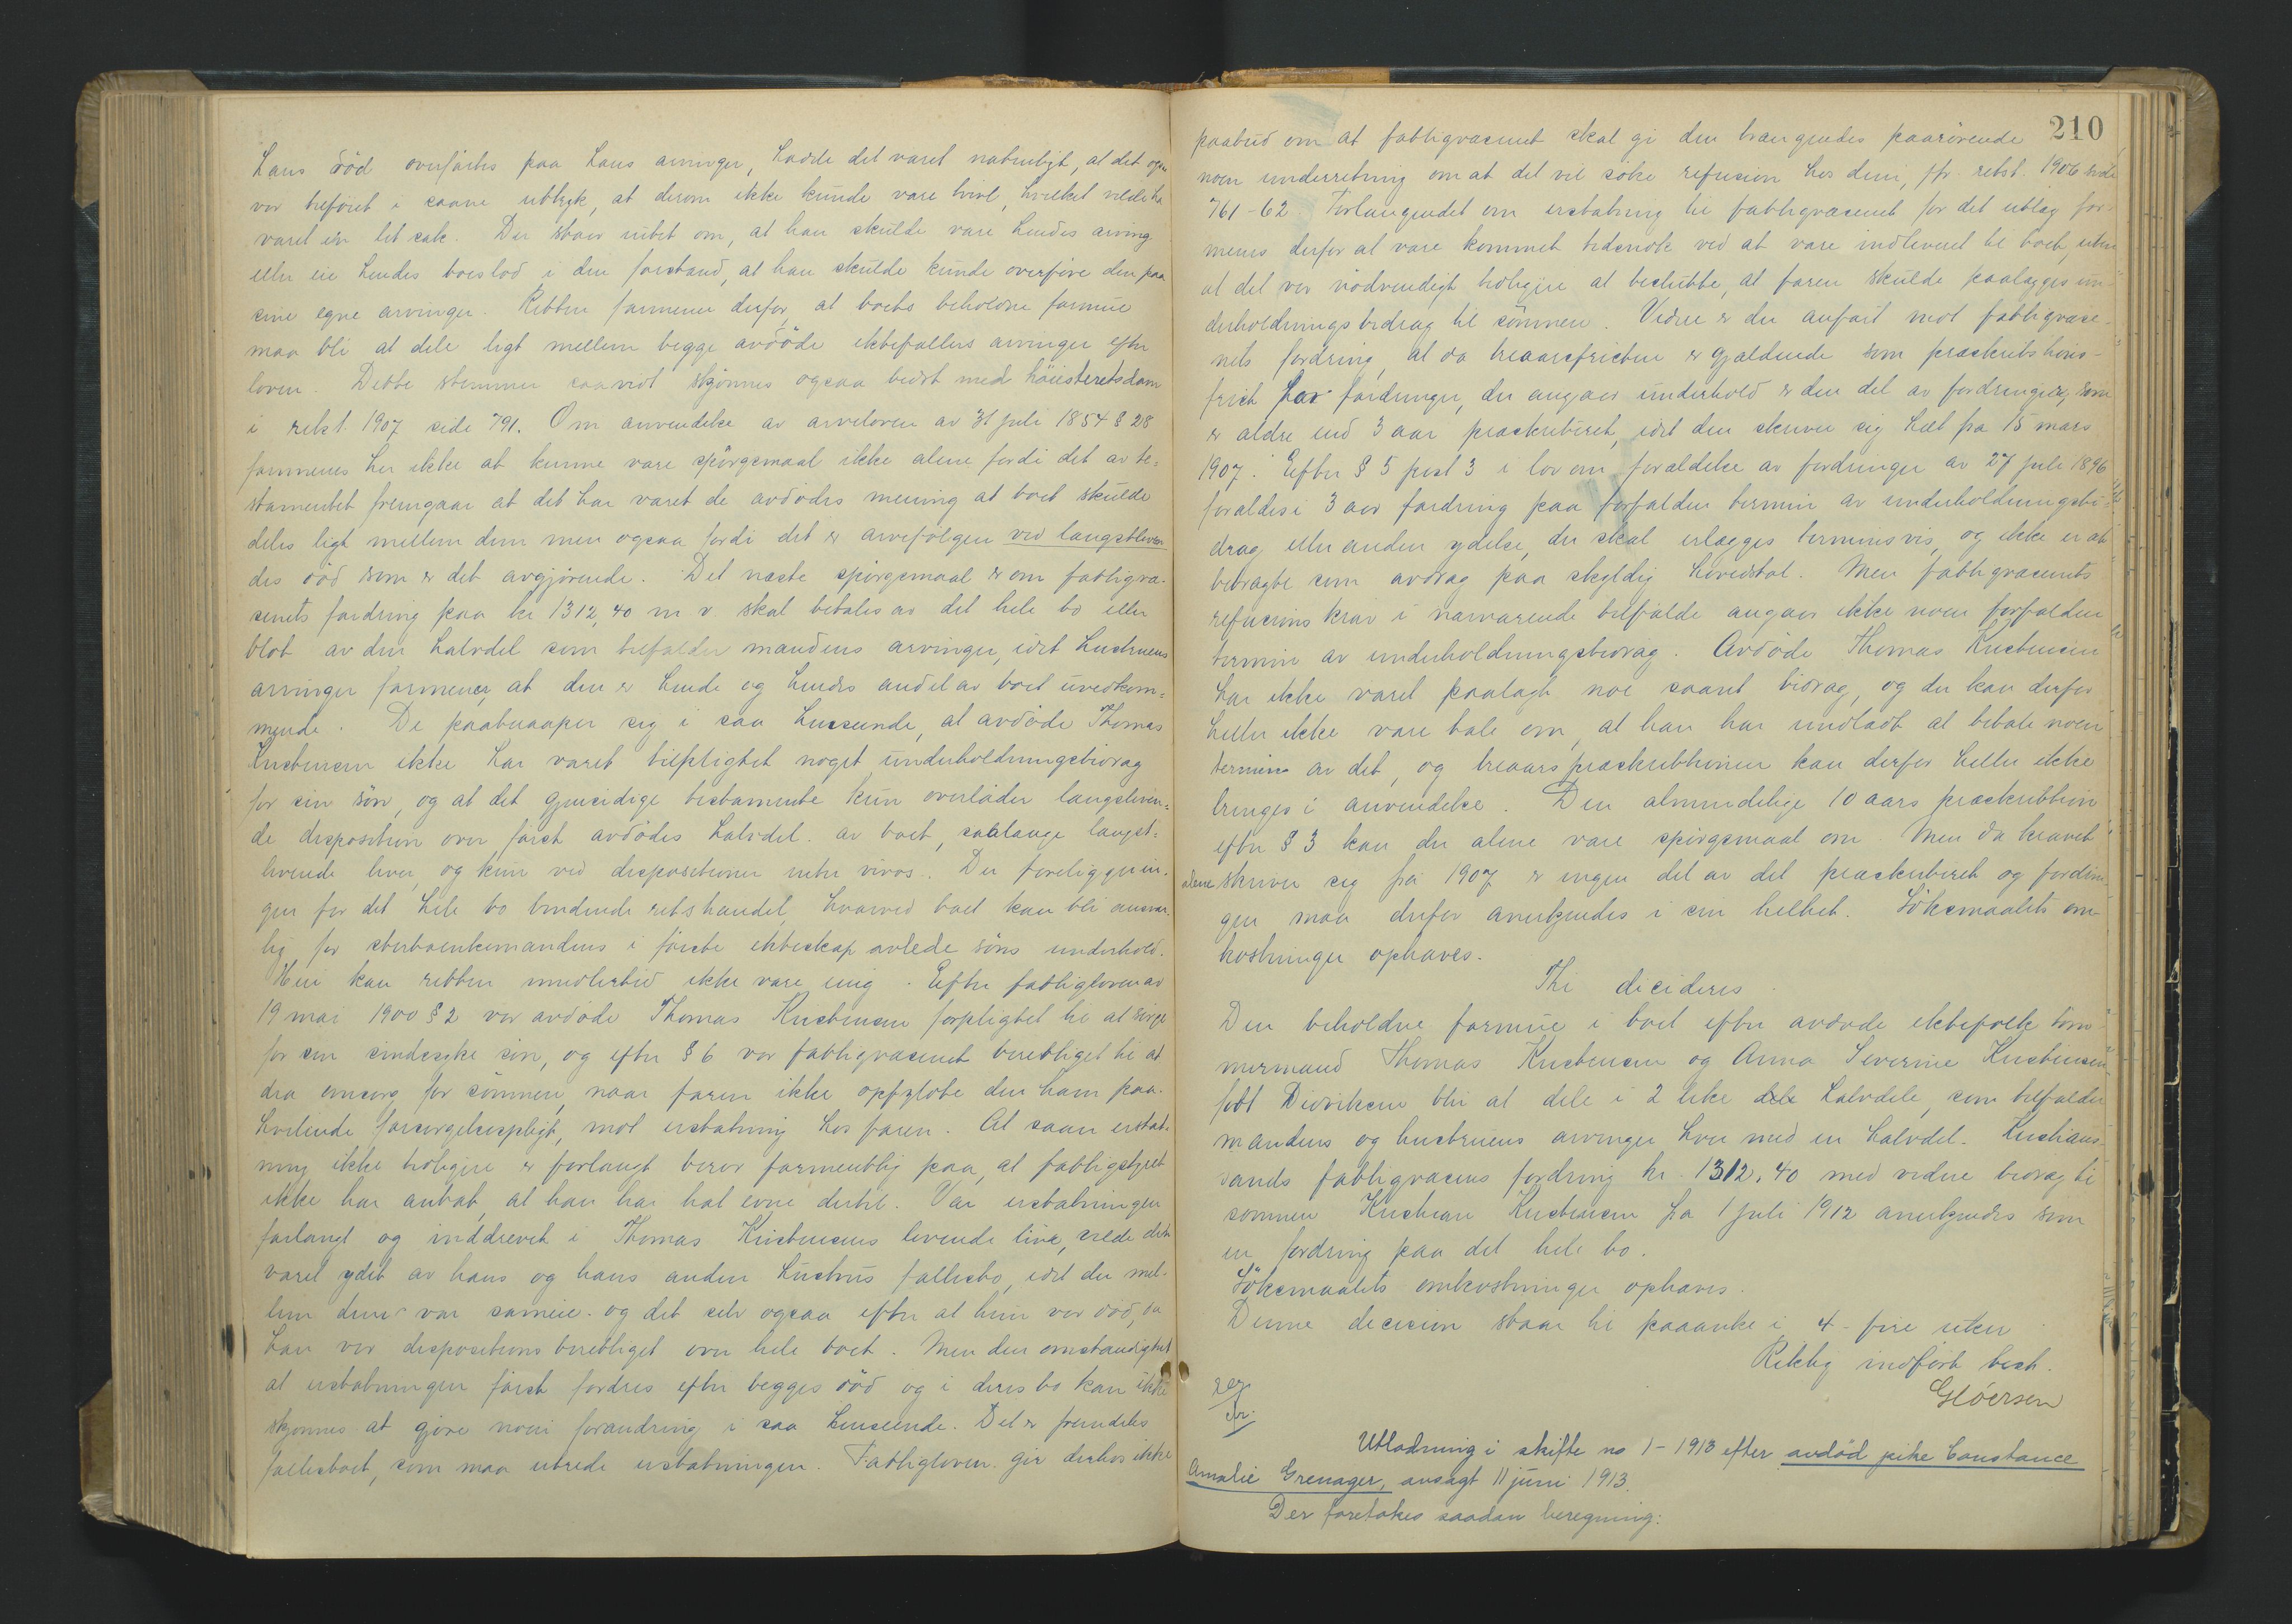 hans död overføres paa hans arvinger, hadde det været naturligt, at det ogsaa
var tilføiet i saane uttryk, at derom ikke kunde være tvivl, hvilket vilde ha
været en let sak. Der staar intet om, at han skulde være hendes arving
eller eie hendes boeslod i den forstand, at han skulde kunde overføre den paa
sine egne arvinger. Retten formener derfor, at boets beholdne formue
maa bli at dele ligt mellem begge avdöde ektefællers arvinger efter
loven. Dette stemmer saavidt skjönnes ogsaa bedst med höiesteretsdom
i retst 1907 side 791. Om anvendelse av arveloven av 31 juli 1854 § 28
formenes her ikke at kunne være spörgsmaal ikke alene fordi det av te-
stamentet fremgaar at det har været de avdödes mening at boet skulde
deles ligt mellem dem men ogsaa fordi det er arvefölgen ved længstleven
des död som er det avgjörende. Det næste spörgsmaal er om fattigvæ-
senets fordring paa kr 1312,40 m v skal betales av det hele bo eller
blot av den halvdel som tilfalder mandens arvinger, idet hustruens
arvinger formener, at den er hende og hendes andel av boet uvedkom-
mende. De paaberaaper sig i saa henseende, at avdöde Thomas
Kristensen ikke har været tilpligtet noget underholdningsbidrag
for sin sön, og at det gjensidige testamente kun overlader længstleven-
de disposition over först avdödes halvdel av boet, saalænge længst-
levende lever, og kun ved dispositioner inter vivos. Der foreligger in-
gen for det hele bo bindende retshandel, hvorved boet kan bli ansvar-
lig for sterboenkemandens i förste ekteskap avlede söns underhold.
Heri kan retten imidlertid ikke være enig. Efter fattigloven av
19 mai 1900 § 2 var avdöde Thomas Kristensen forpligtet til at sörge
for sin sindssyke sön, og efter § 6 var fattigvæsenet berettiget til at
dra omsorg for sönnen, naar faren ikke opfyldte den ham paa-
hvilende forsörgelsespligt, mot erstatning hos faren. At saan erstat-
ning ikke tidligere er forlangt beror formentlig paa, at fattigstyret
ikke har antat, at han har hat evne dertil. Var erstatningen
forlangt og inddrevet i Thomas Kristensens levende live, vilde den
været ydet av hans og hans anden hustrus fællesbo, idet der mel-
lem dem var sameie og det selv ogsaa efter at hun var död, da
han var dispositions berettiget over hele boet. Men den omstændighet
at erstatningen först fordres efter begges död og i deres bo kan ikke
skjönnes at gjöre noen forandring i saa henseende. Det er fremdeles
fællesboet, som maa utrede erstatningen. Fattigloven gir derhos ikke
210
paabud om at fattigvæsenet skal gi den trængendes paarörende
noen underretning om at det vil söke refusion hos dem, jfr. retst. 1906 side
761-62. Forlangendet om erstatning til fattigvæsenet for det utlæg for-
menes derfor at være kommet betids nok ved at være indleveret til boet, uten
at det var nödvendigt tidligere at beslutte, at faren skulde paalægges un-
derholdnings bidrag til sönnen. Videre er der anført mot fattigvæse-
nets fordring, at da treaarsfristen er gjældende som præskriptions-
frist for fordringer, der angaar underhold er den del av fordringen, som
er ældre end 3 aar præskriberet, idet den skriver sig helt fra 15 mars
1907. Efter § 5 post 3 i lov om forældelse av fordringer av 27 juli 1896
forældes i 3 aar fordring paa forfalden termin av underholdningsbi-
drag eller anden ydelse, der skal erlægges terminsvis, og ikke er at
betragte som avdrag paa skyldig hovedstol. Men fattigvæsenets
refusions krav i nærværende tilfælde angaar ikke noen forfalden
termin av underholdningsbidrag. Avdöde Thomas Kristensen
har ikke været paalagt noe saant bidrag, og der kan derfor
heller ikke være tale om, at han har undladt at betale noen
termin av det, og treaars præskriptionen kan derfor heller ikke
bringes i anvendelse. Den almindelige 10 aars præskription
efter § 3 kan der alene være spörgsmaal om. Men da kravet
alene skriver sig fra 1907 er ingen del av det præskriberet og fordrin-
gen maa derfor anerkjendes i sin helhet. Söksmaalets om-
kostninger ophæves.
Thi decideres
Den beholdne formue i boet efter avdöde ektefolk töm-
mermand Thomas Kristensen og Anna Severine Kristensen
född Didriksen blir at dele i 2 like dele halvdele, som tilfalder
mandens og hustruens arvinger hver med en halvdel. Kristians-
sands fattigvæsens fordring kr 1312,40 med videre bidrag til
sönnen Kristian Kristensen fra 1 juli 1912 anerkjendes som
en fordring paa det hele bo.
Söksmaalets omkostninger ophæves.
Denne decision staar til paaanke i 4 - fire uker
Riktig indført best.
Glöersen
Utlodning i skifte no 1-1913 efter avdöd pike Constance
Amalie Grenager, avsagt 11 juni 1913.
Der foretokes saadan beregning: